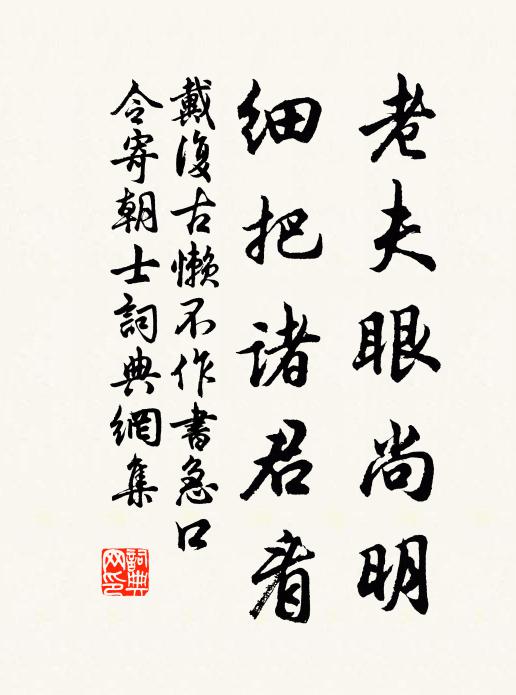 老夫眼尚明
细把诸君看
戴復古懒不作書急口
令寄朝士詞典網集
詞典
网印